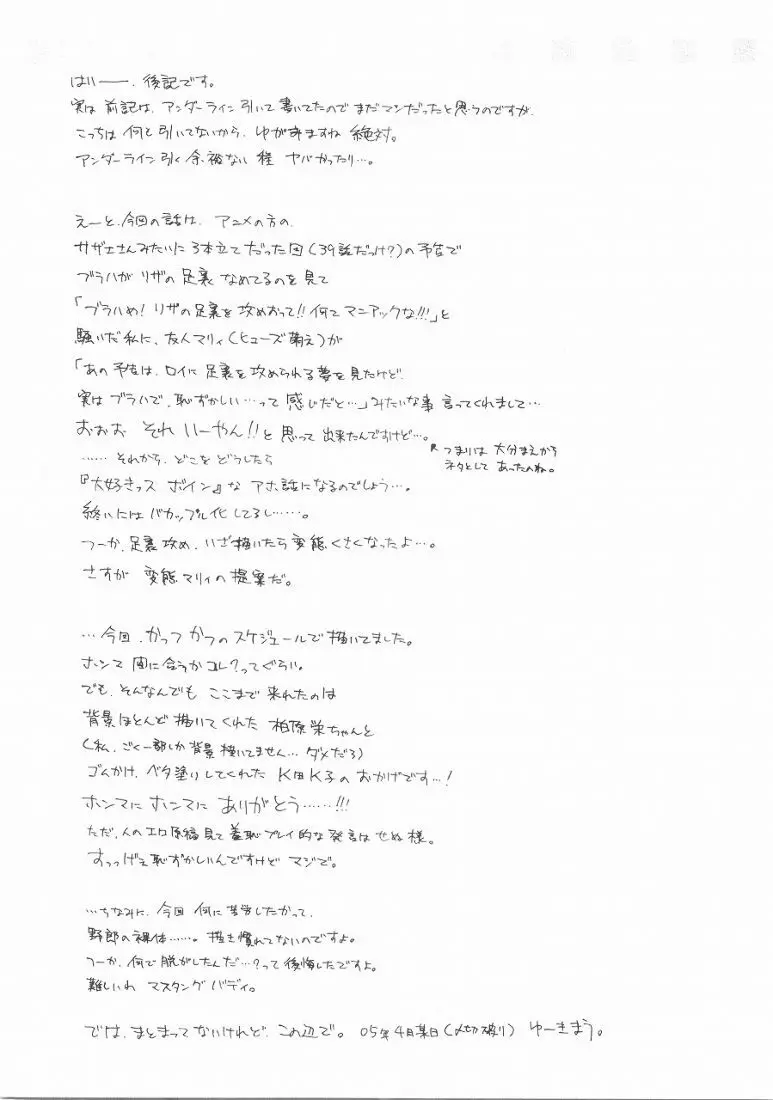 はいーー、後記です。
実は前記は、アンダーライン引いて書いてたのでまだマシだったと思うのですが、
こっちは何も引いてないから、ゆがみますね 絶対。
アンダーライン引く余裕ない程 ヤバかったり…。
えーと、今回の話は、アニメの方の、
サザエさんみたいに3本立てだった回(39話だっけ?)の予告で
ブラハがリザの足裏なめてるのを見て
「ブラハめ!リザの足裏を攻めおって!!何てマニアックな!!!」と
騒いだ私に、友人マリィ(ヒューズ萌え)が
「あの予告は、ロイに足裏を攻められる夢を見たけど、
実はブラハで、恥ずかしい…って感じだと…」みたいな事言ってくれまして…
おぉぉ それ いーやん!!と思って出来たんですけど…。
つまりは 大分まえから
ネタとして あったのね。
…… それから、どこをどうしたら
『大好きっス ボイン』な アホ話になるのでしょう…。
終いにはバカップル化してるし……。
つーか、足裏攻め、いざ描いたら変態くさくなったよ…。
さすが 変態マリィの提案だ。
…今回、かっつかつのスケジュールで描いてました。
ホンマ間に合うかコレ?ってぐらい。
でも、そんなんでも ここまで来れたのは
背景ほとんど描いてくれた 柏原栄ちゃんと
(私、ごく一部しか背景描いてません… ダメだろ)
ゴムかけ、ベタ塗りしてくれた K田K子のおかげです…!
ホンマに ホンマに ありがとう……!!!
ただ、人のエロ原稿見て羞恥プレイ的な発言はせぬ様。
すっっげぇ恥ずかしいんですけど マジで。
…ちなみに、今回 何に苦労したかって、
野郎の裸体……。描き慣れてないのですよ。
つーか、何で脱がしたんだ…?って後悔したですよ。
難しいわ マスタングバディ。
では、まとまってないけれど、この辺で。05年4月某日(〆切破り) ゆーきまう。